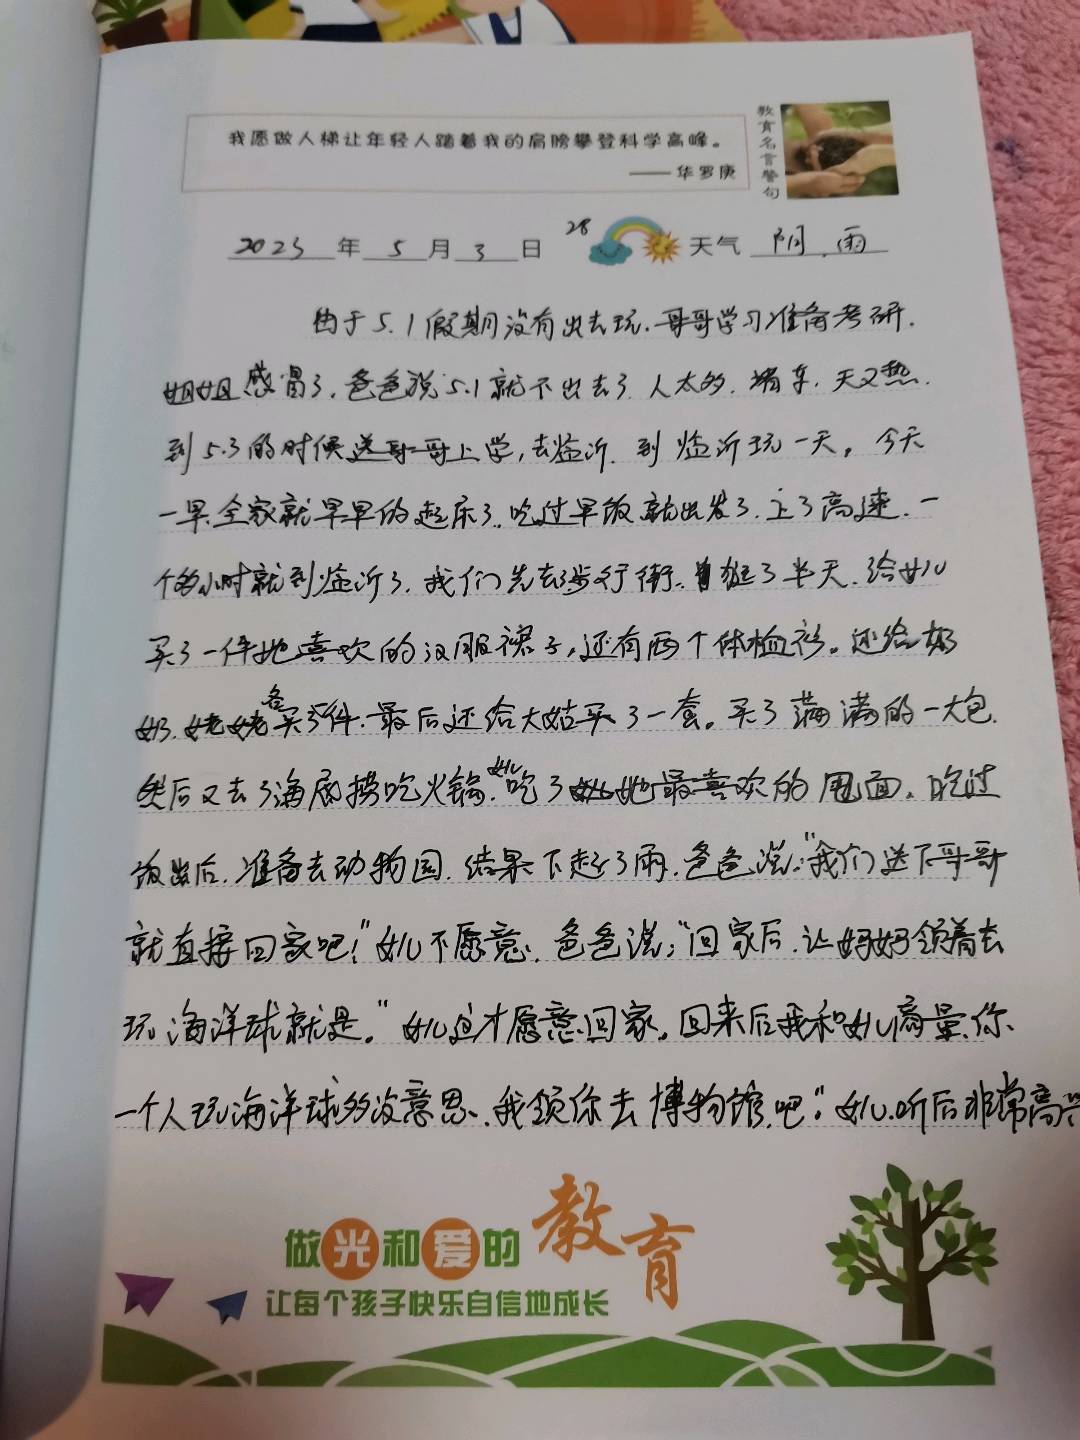 我愿做人梯让年轻人踏着我的肩膀攀登科学高峰。
——华罗庚
教育名言警句
2023年5月3日 28 天气 阴.雨
由于5.1假期没有出去玩.哥哥学习准备考研.
姐姐感冒了.爸爸说5.1就不出去了.人太多.堵车.天又热.
到5.3的时候送哥哥上学,去临沂.到临沂玩一天。今天
一早.全家就早早的起床了.吃过早饭就出发了.上了高速.一
个多小时就到临沂了.我们先去步行街.逛了半天.给妞儿
买了一件她喜欢的汉服裙子,还有两个体恤衫。还给奶
奶.姥姥各买了件.最后还给大姑买了一套。买了满满的一大包.
然后又去了海底捞吃火锅.妞儿吃了她最喜欢的甩面.吃过
饭出后.准备去动物园.结果下起了雨.爸爸说:"我们送下哥哥
就直接回家吧!"妞儿不愿意.爸爸说:"回家后.让妈妈领着去
玩海洋球就是。"妞儿这才愿意回家。回来后我和妞儿商量.你
一个人玩海洋球多没意思.我领你去博物馆吧."妞儿听后非常高兴
做光和爱的教育
让每个孩子快乐自信地成长